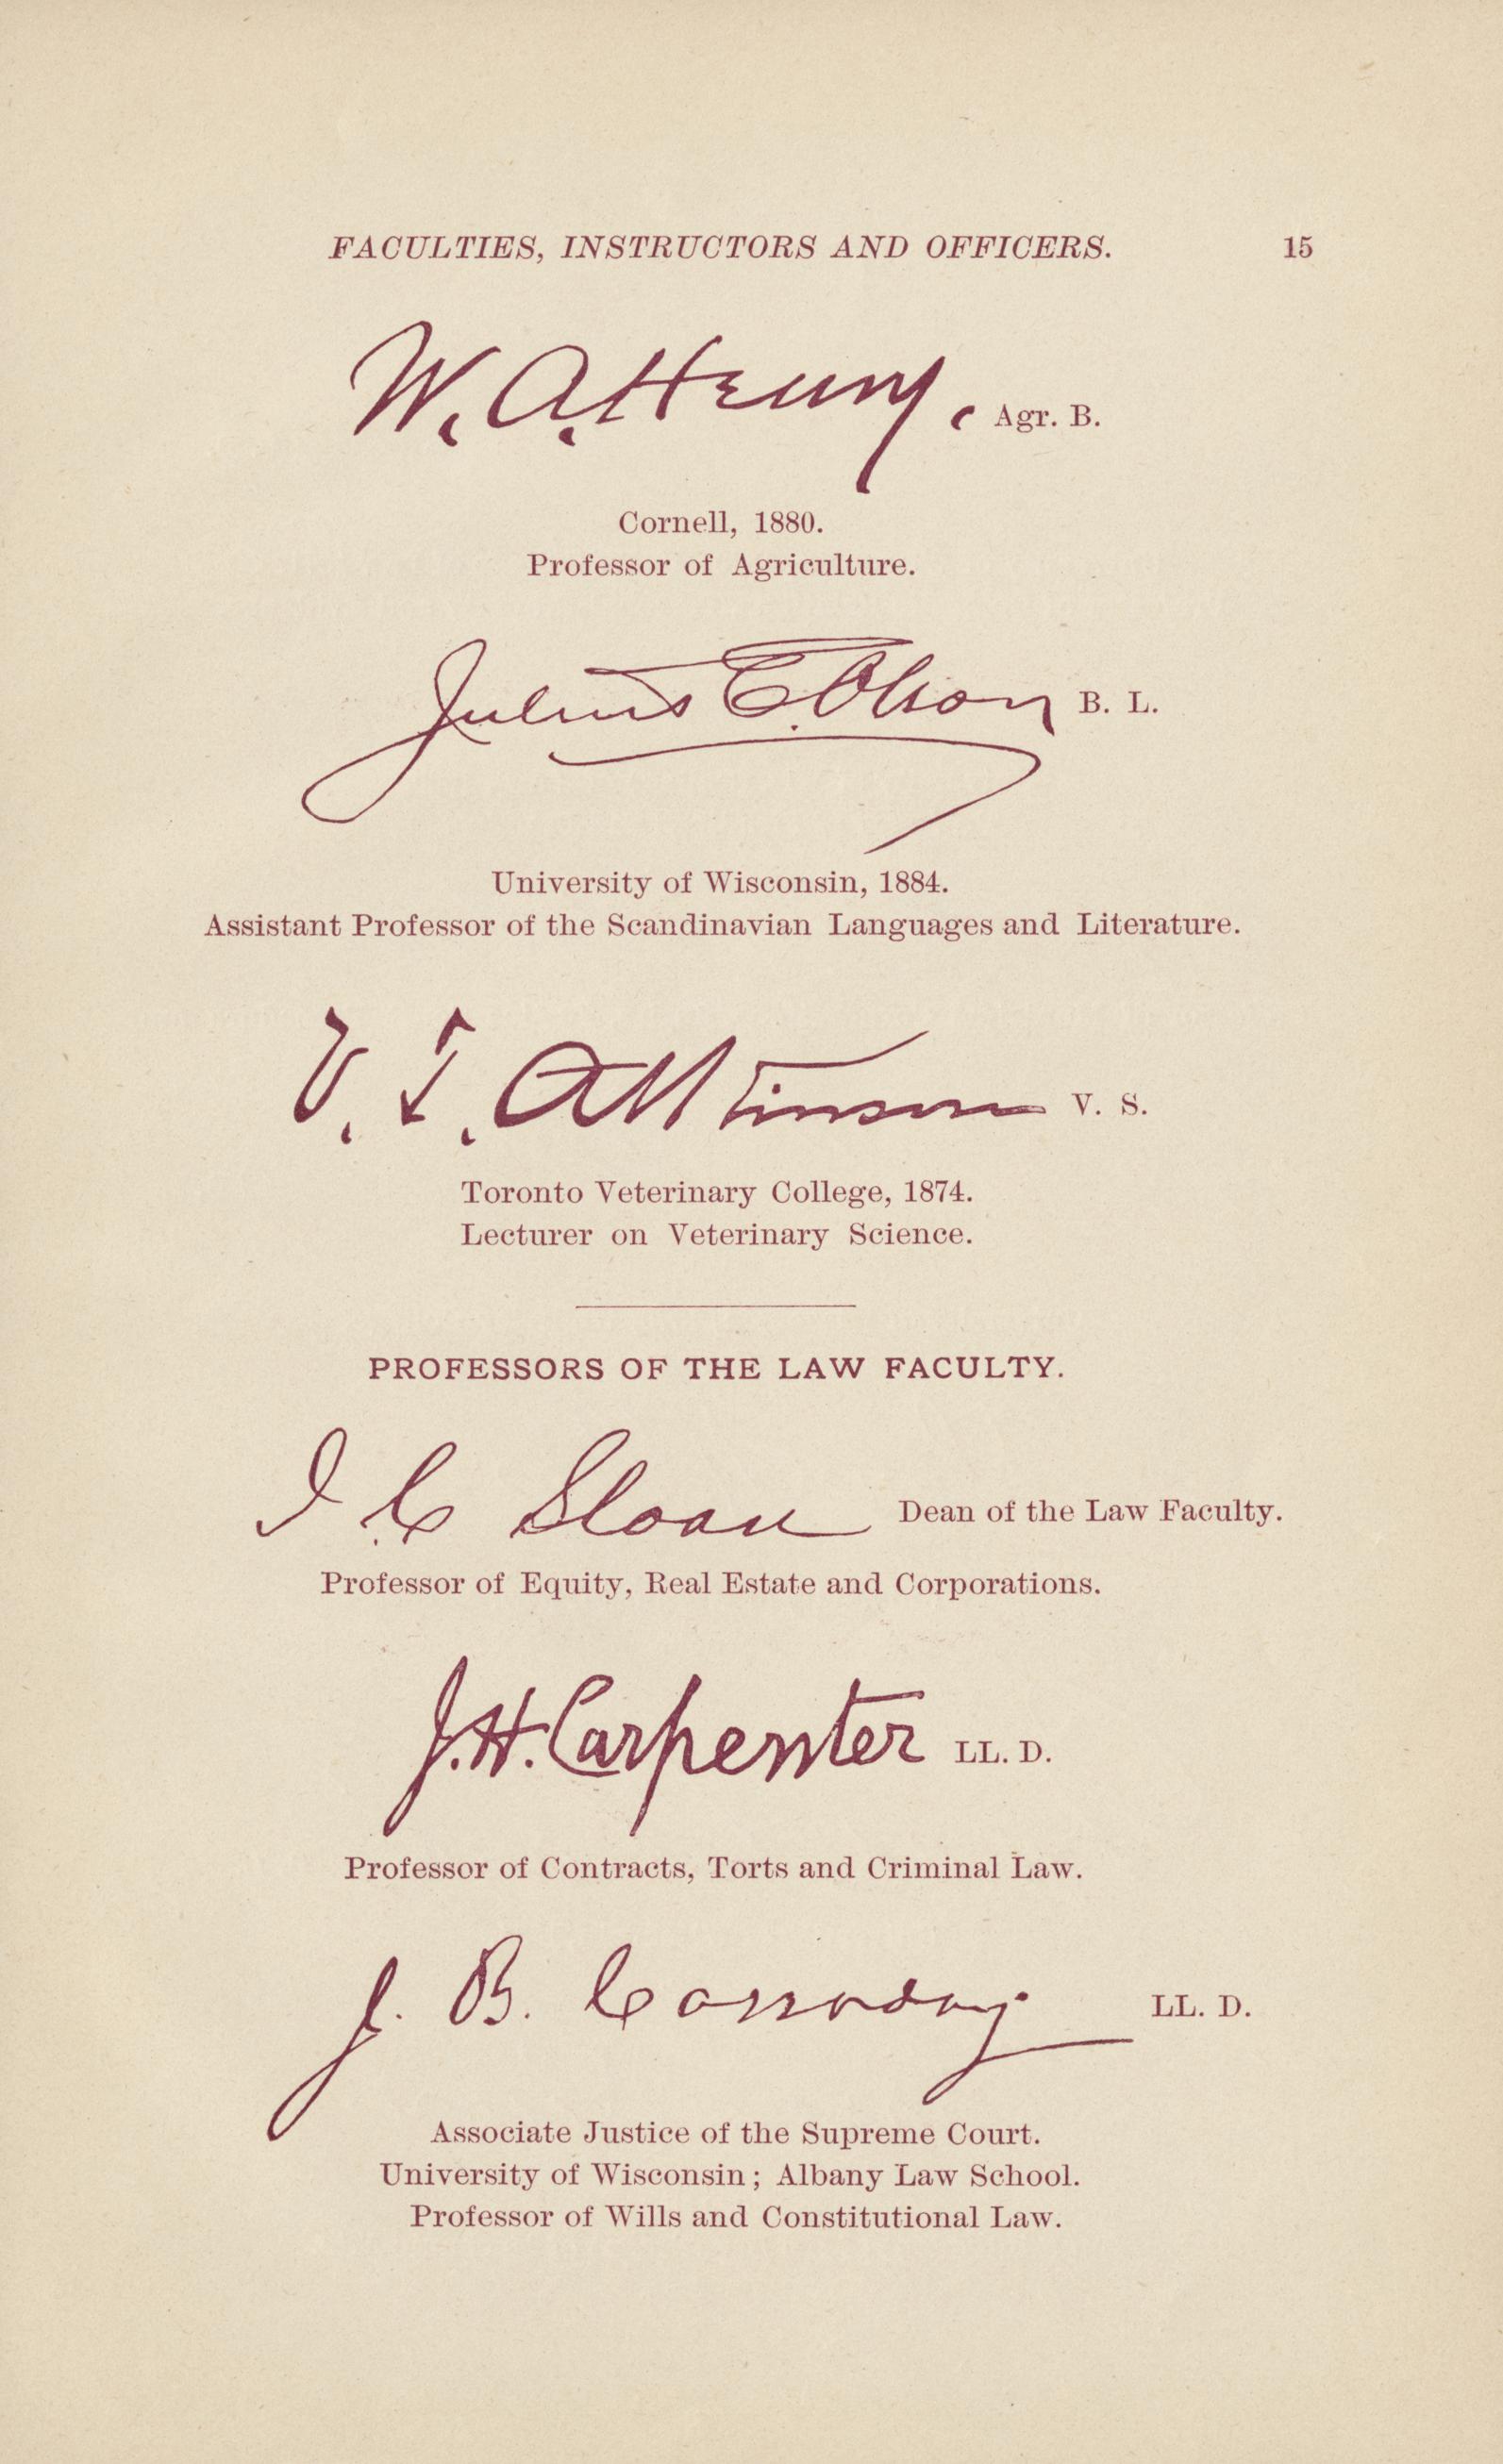 FACULTIES, INSTRUCTORS AND OFFICERS. 15
W. A. Henry, Agr. B.
Cornell, 1880.
Professor of Agriculture.
Julius E. Olson B. L.
University of Wisconsin, 1884.
Assistant Professor of the Scandinavian Languages and Literature.
V. T. Atkinson V. S.
Toronto Veterinary College, 1874.
Lecturer on Veterinary Science.
PROFESSORS OF THE LAW FACULTY.
I. C. Sloan Dean of the Law Faculty.
Professor of Equity, Real Estate and Corporations.
J. H. Carpenter LL. D.
Professor of Contracts, Torts and Criminal Law.
J. B. Cassoday LL. D.
Associate Justice of the Supreme Court.
University of Wisconsin; Albany Law School.
Professor of Wills and Constitutional Law.